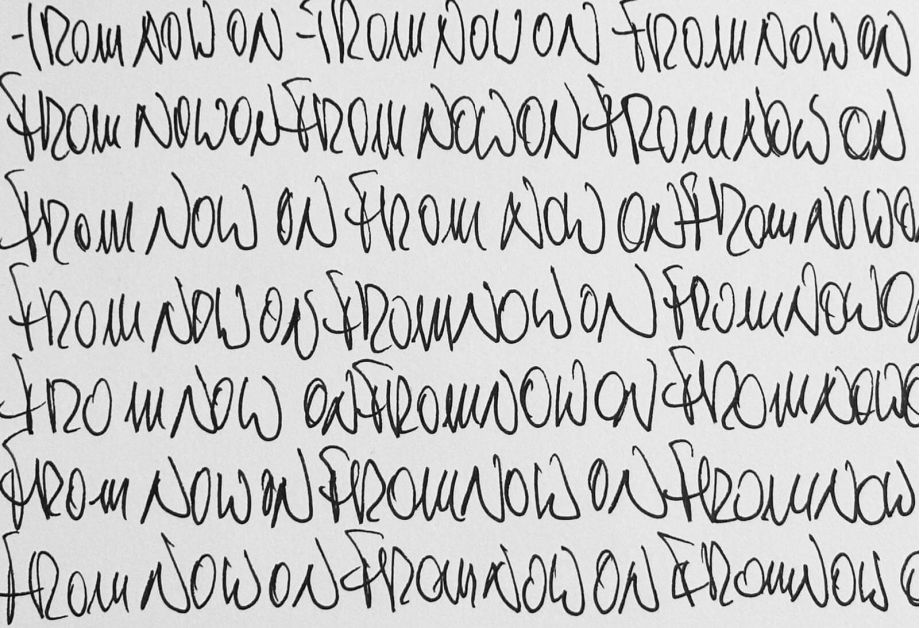 FROM NOW ON FROM NOW ON FROM NOW ON
FROM NOW ON FROM NOW ON FROM NOW ON
FROM NOW ON FROM NOW ON FROM NOW O
FROM NOW ON FROM NOW ON FROM NOW O
FROM NOW ON FROM NOW ON FROM NOW O
FROM NOW ON FROM NOW ON FROM NOW
FROM NOW ON FROM NOW ON FROM NOW O